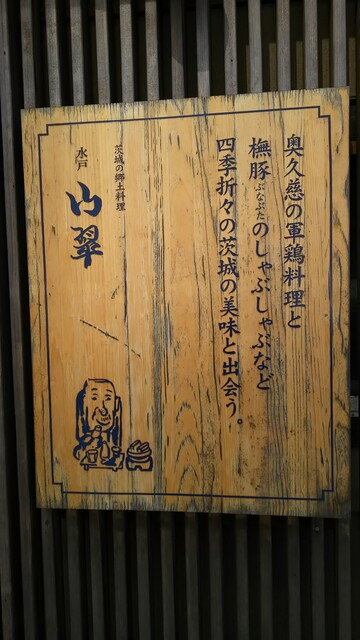 奥久慈の軍鶏料理と
橅豚ぶなぶたのしゃぶしゃぶなど
四季折々の茨城の美味と出会う。
茨城の郷土料理
水戸
山翠